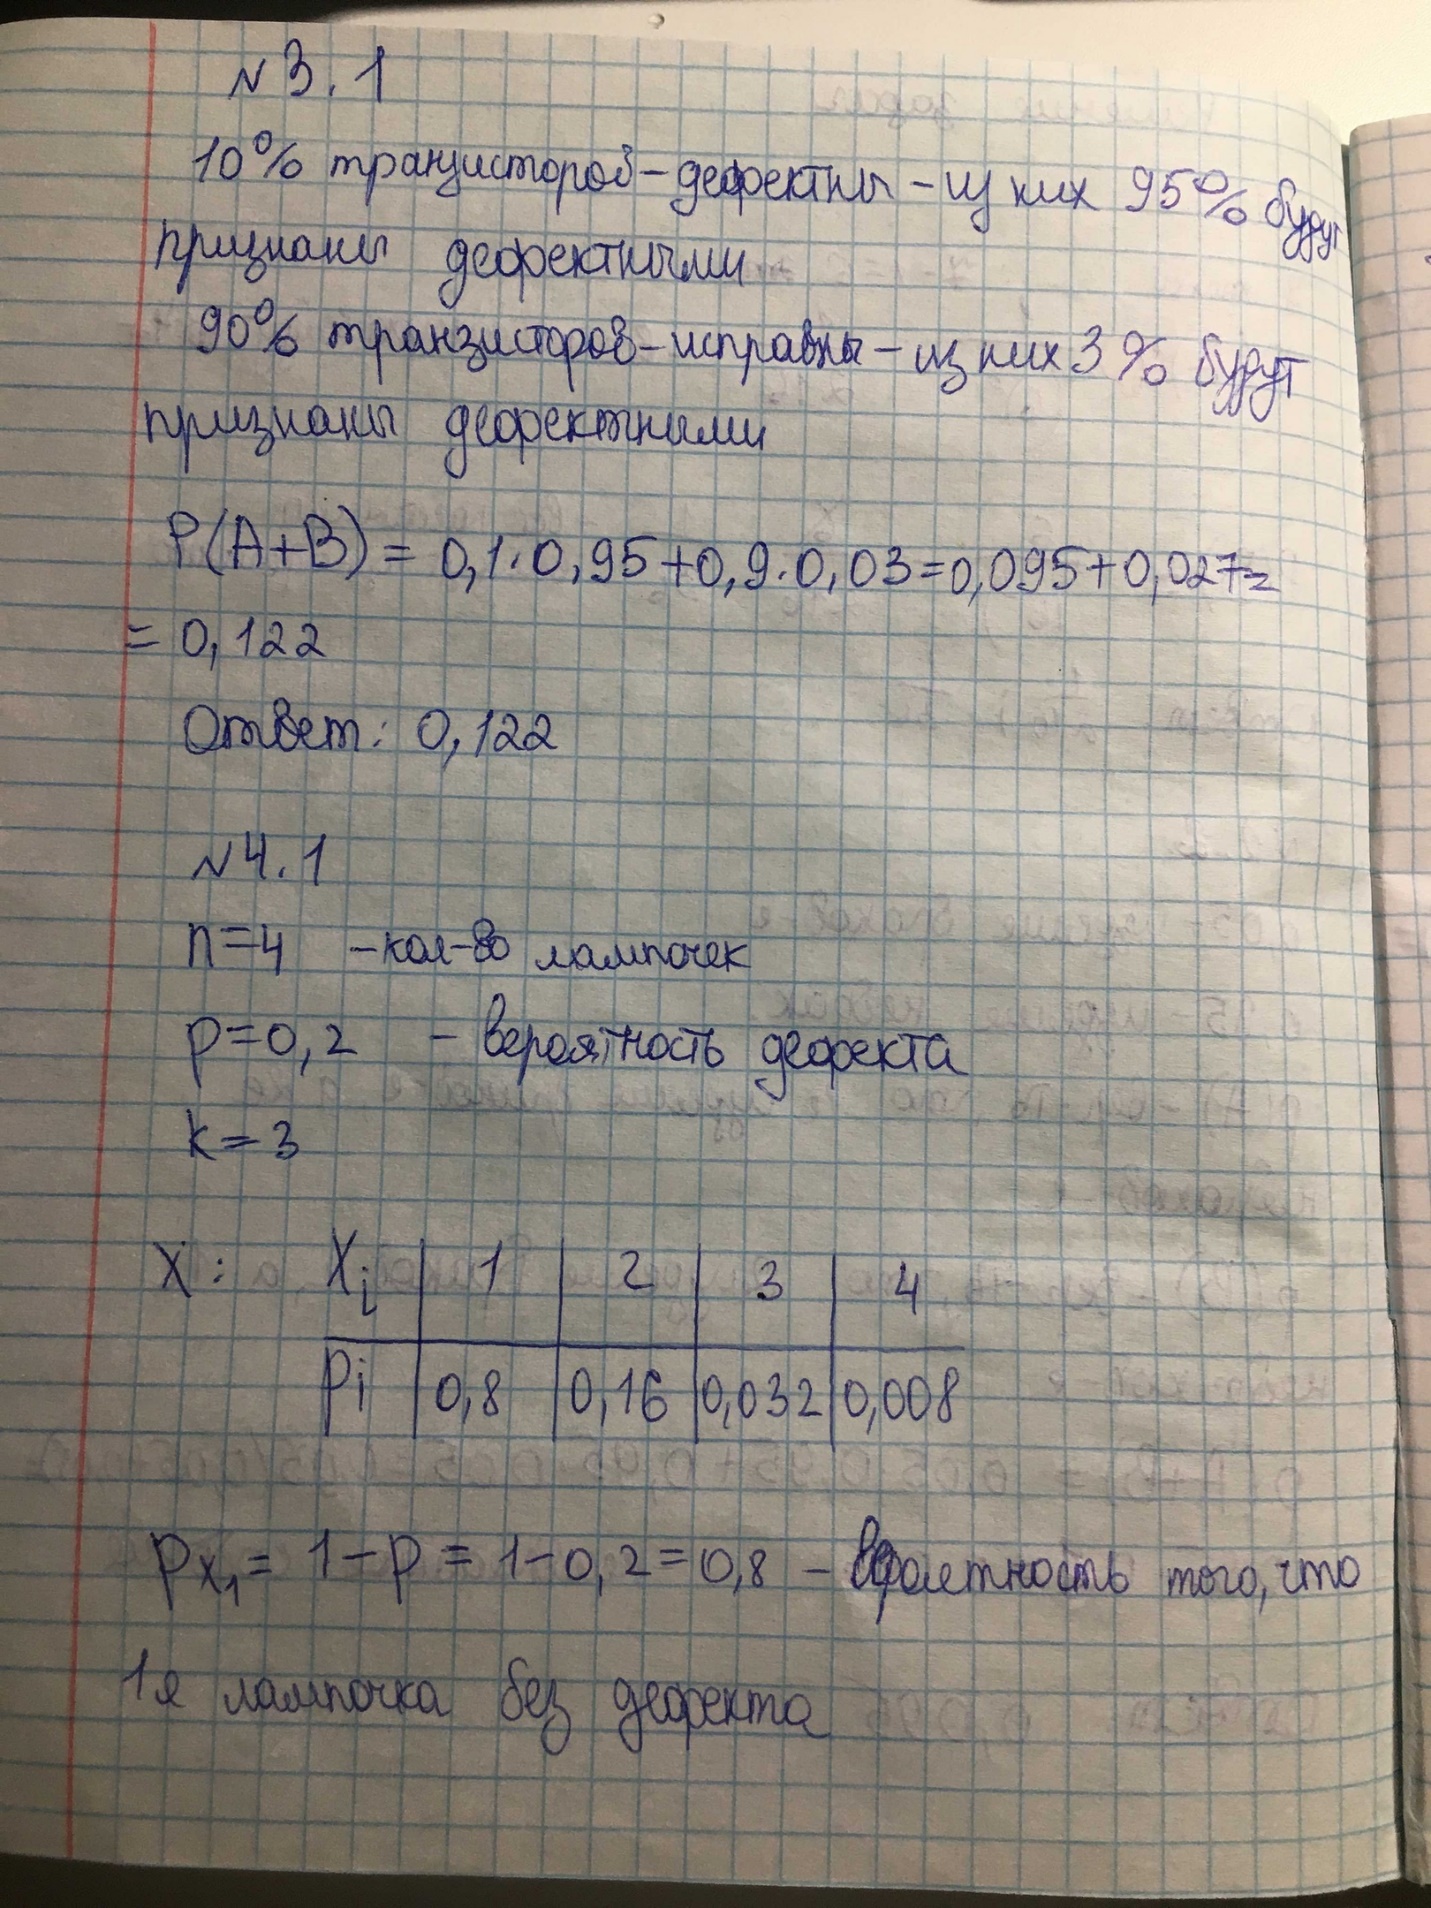 №3.1
10% транзисторов - дефектны - из них 95% будут
признаны дефектными
90% транзисторов - исправны - из них 3% будут
признаны дефектными
P(A+B) = 0,1·0,95+0,9·0,03=0,095+0,027=
= 0,122
Ответ: 0,122
№4.1
n=4 - кол-во лампочек
p=0,2 - вероятность дефекта
k=3
X: Xi | 1 | 2 | 3 | 4
Pi | 0,8 | 0,16 | 0,032 | 0,008
Px1 = 1-p = 1-0,2=0,8 - вероятность того, что
1я лампочка без дефекта